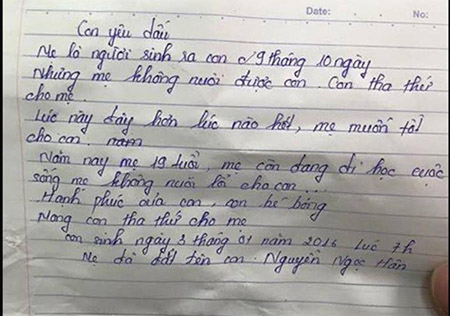 Date: No:
Con yêu dấu
Mẹ là người sinh ra con 9 tháng 10 ngày
Nhưng mẹ không nuôi được con. Con tha thứ
cho mẹ.
Lúc này đây hơn lúc nào hết, mẹ muốn tốt
cho con. nam
Năm nay mẹ 19 tuổi, mẹ còn đang đi học cuộc
sống mẹ không nuôi lổi cho con...
Hạnh phúc của con, con bé bỏng
Mong con tha thứ cho mẹ
con sinh ngày 3 tháng 01 năm 2016 lúc 7h
Mẹ đã đặt tên con. Nguyễn Ngọc Hân